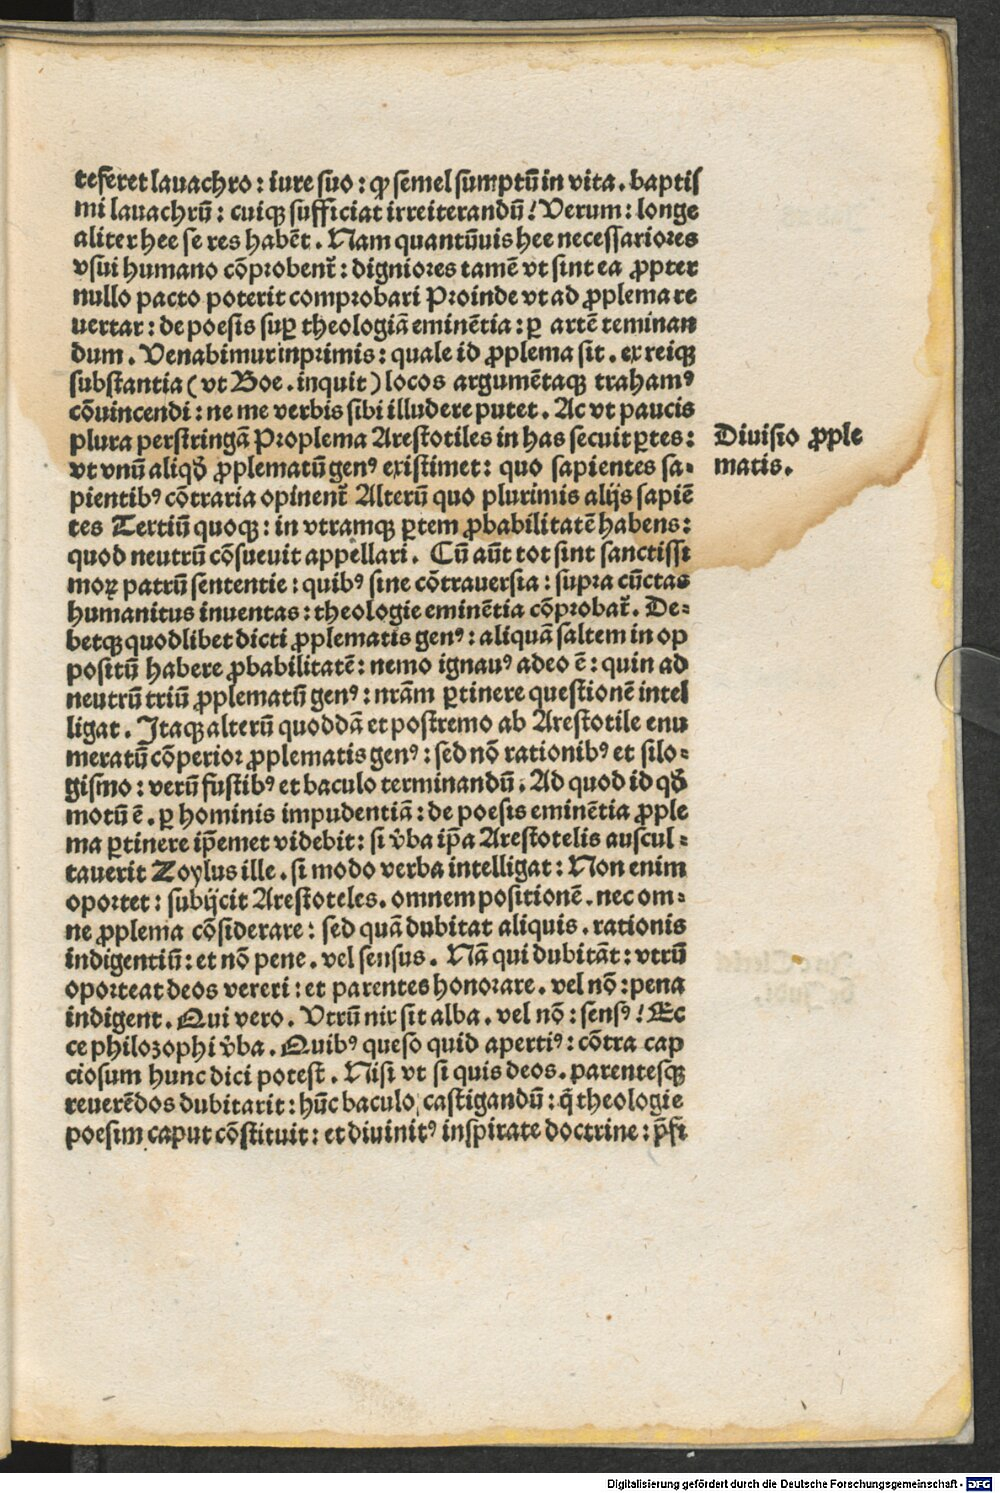 teferet lauachro : iure suo : ꝙ semel sumptū in vita . baptis
mi lauachrū : cuiqꝫ sufficiat irreiterandū! Verum : longe
aliter hee se res habēt . Nam quantūuis hee necessariores
vsui humano cōprobent᷑ : digniores tamē vt sint ea ꝓpter
nullo pacto poterit comprobari Proinde vt ad ꝓplema re
uertar : de poesis suꝑ theologiā eminētia : ꝑ artē teminan
dum . Venabimur inprimis : quale id ꝓplema sit . ex reiqꝫ
substantia ( vt Boe . inquit ) locos argumētaqꝫ trahamꝰ
cōuincendi : ne me verbis sibi illudere putet . Ac vt paucis
plura perstringā Proplema Arestotiles in has secuit ꝑtes :
vt vnū aliqḋ ꝓplematū genꝰ existimet : quo sapientes sa-
pientibꝰ cōtraria opinent᷑ Alterū quo plurimis alijs sapiē
tes Tertiū quoqꝫ : in vtramqꝫ ꝑtem ꝓbabilitatē habens :
quod neutrū cōsueuit appellari . Cū aūt tot sint sanctissi
moꝝ patrū sententie : quibꝰ sine cōtrauersia : supra cūctas
humanitus inuentas : theologie eminētia cōprobat᷑ . De-
betqꝫ quodlibet dicti ꝓplematis genꝰ : aliquā saltem in op
positū habere ꝓbabilitatē : nemo ignauꝰ adeo ē : quin ad
neutrū triū ꝓplematū genꝰ : nrām ꝑtinere questionē intel
ligat . Itaqꝫ alterū quoddā et postremo ab Arestotile enu
meratū cōperior ꝓplematis genꝰ : sed nō rationibꝰ et silo-
gismo : verū fustibꝰ et baculo terminandū . Ad quod id qḋ
motū ē . ꝑ hominis impudentiā : de poesis eminētia ꝓple
ma ꝑtinere ip̄emet videbit : si v̄ba ip̄a Arestotelis auscul-
tauerit Zoylus ille . si modo verba intelligat : Non enim
oportet : subijcit Arestoteles . omnem positionē . nec om-
ne ꝓplema cōsiderare : sed quā dubitat aliquis . rationis
indigentiū : et nō pene . vel sensus . Nā qui dubitāt : vtrū
oporteat deos vereri : et parentes honorare . vel nō : pena
indigent . Qui vero . Vtrū nix sit alba . vel nō : sensꝰ! Ec
ce philozophi v̄ba . Quibꝰ queso quid apertiꝰ : cōtra cap
ciosum hunc dici potest . Nisi vt si quis deos . parentesqꝫ
reuerēdos dubitarit : hūc baculo castigandū : q̄ theologie
poesim caput cōstituit : et diuinitꝰ inspirate doctrine : p̄fi
Diuisio ꝓple
matis .
Digitalisierung gefördert durch die Deutsche Forschungsgemeinschaft - DFG